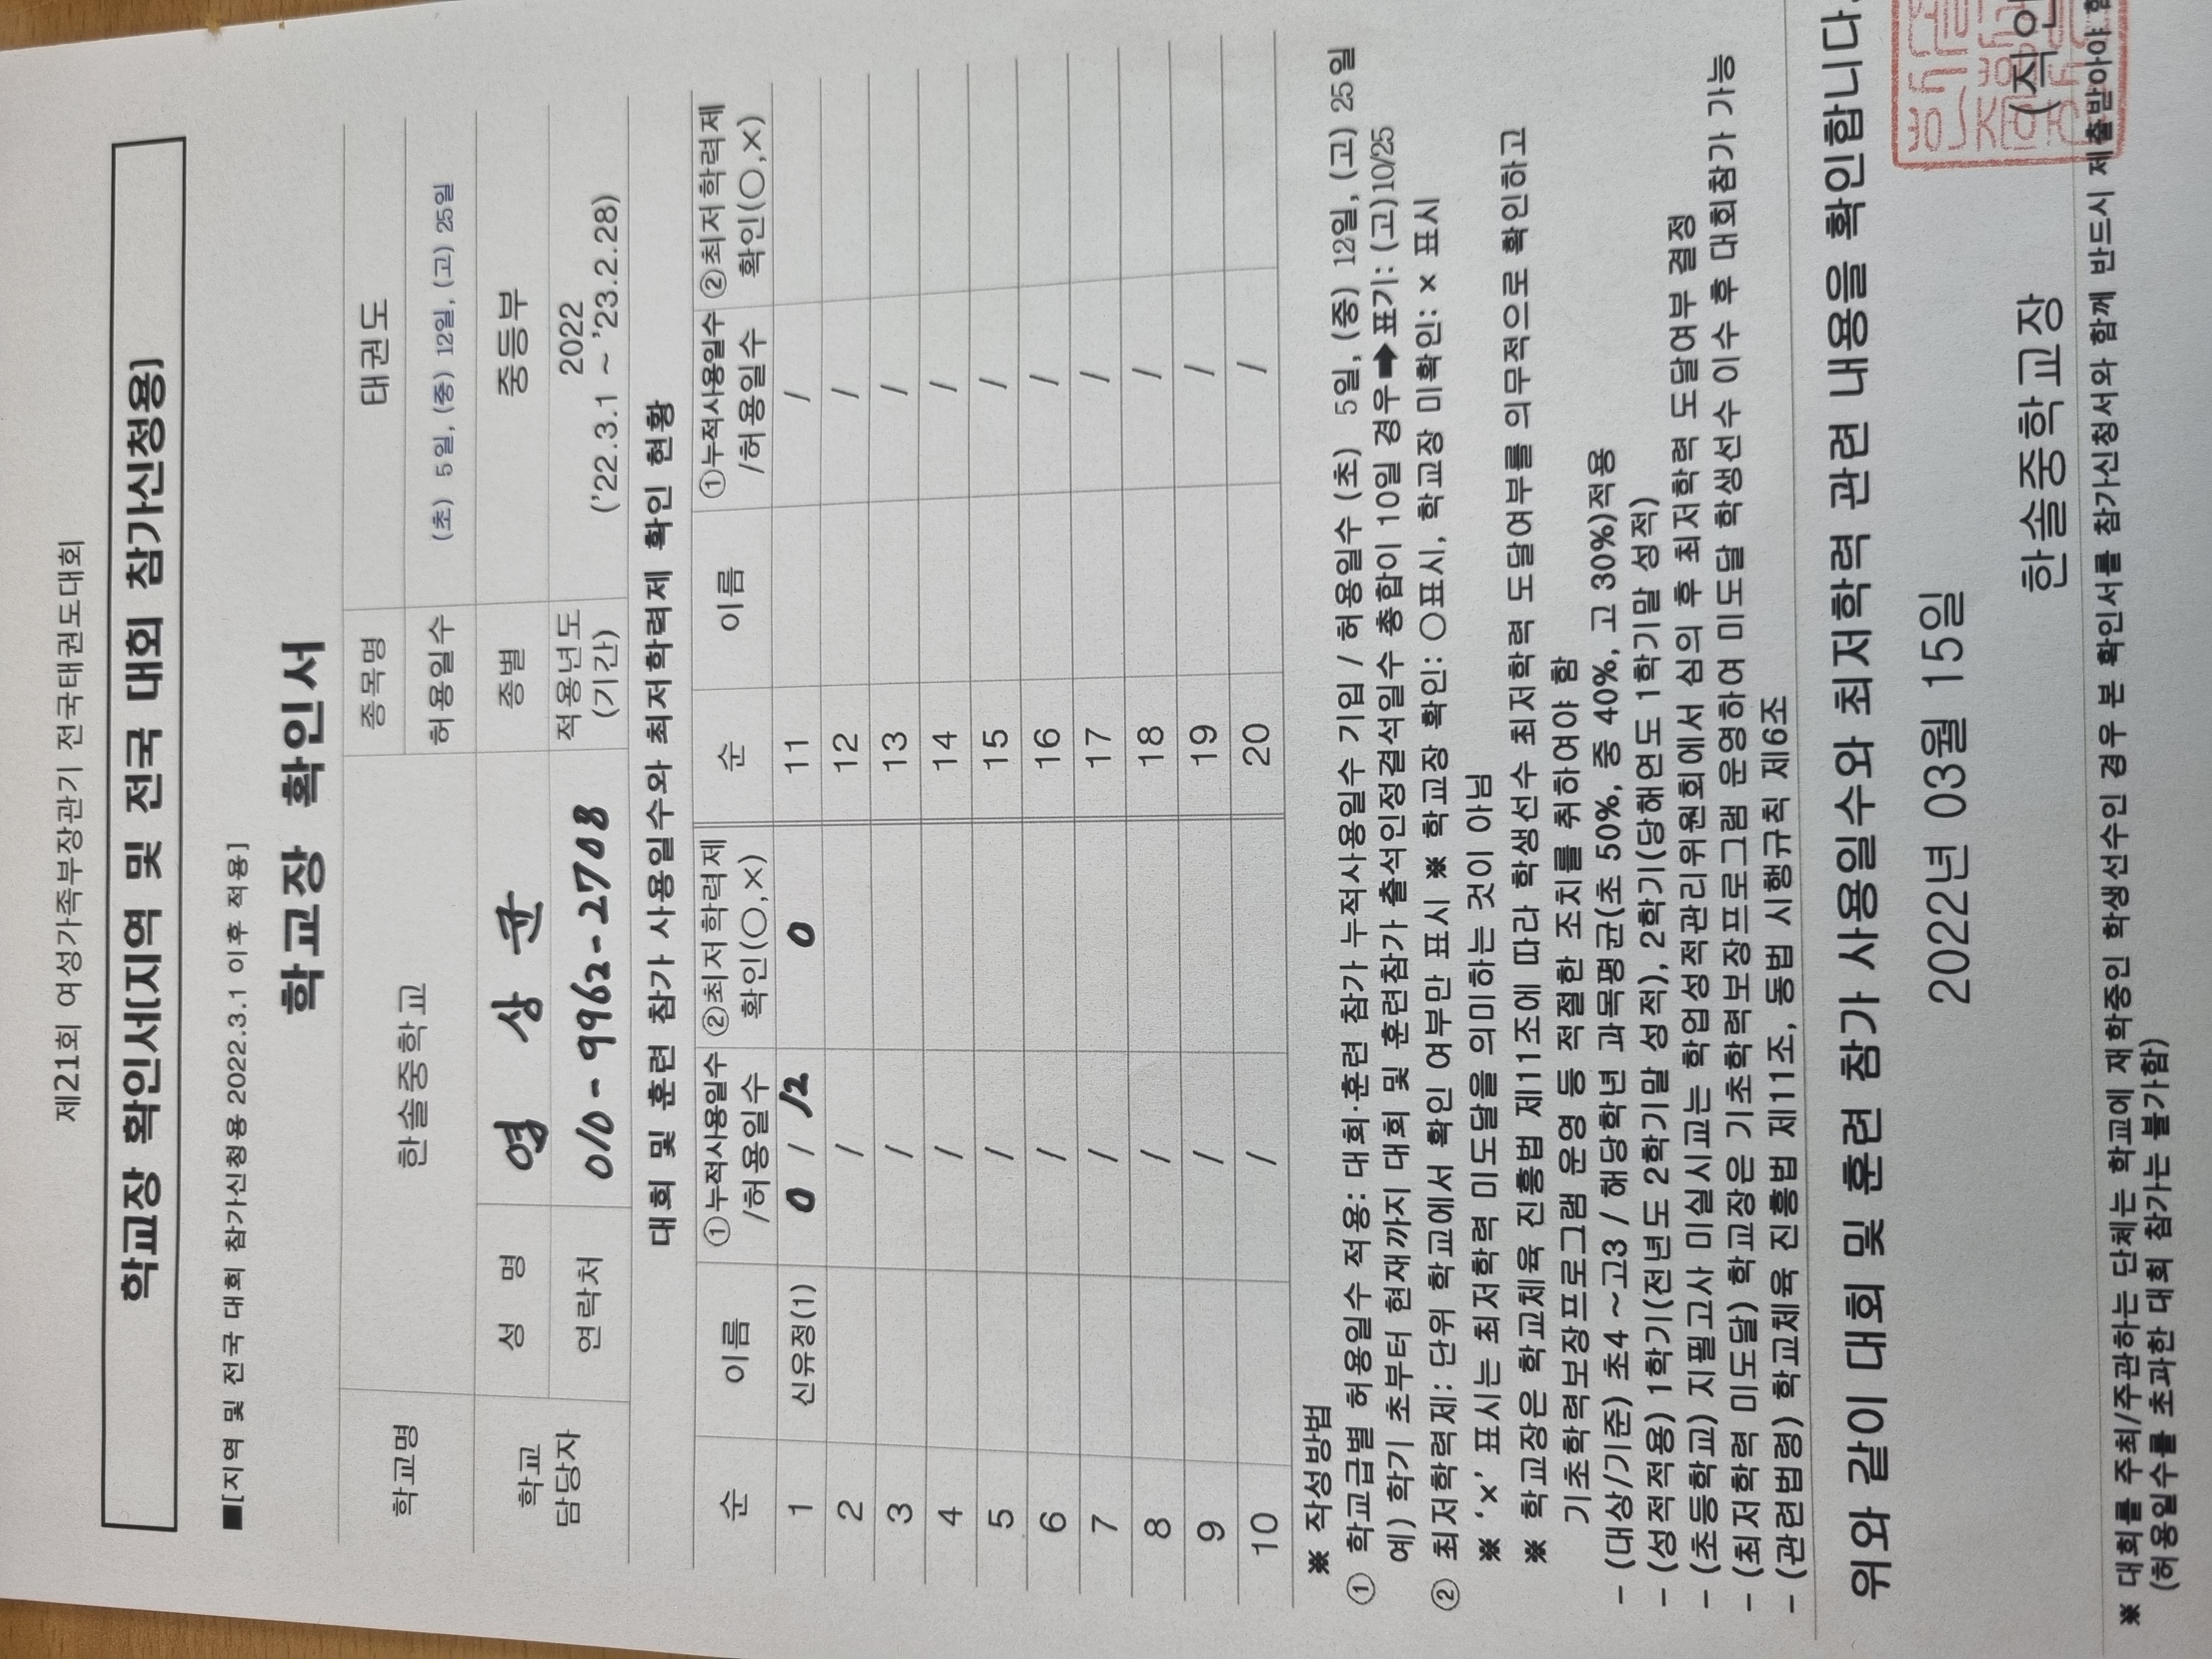 제21회 여성가족부장관기 전국태권도대회
학교장 확인서[지역 및 전국 대회 참가신청용]
■[지역 및 전국 대회 참가신청용 2022.3.1 이후 적용]
학교장 확인서
학교명 한솔중학교 종목명 태권도
허용일수 (초) 5일, (중) 12일, (고) 25일
학교 담당자 성 명 염 상 균 종별 중등부
연락처 010-9962-2708 적용년도 (기간) 2022 ('22.3.1 ~ '23.2.28)
대회 및 훈련 참가 사용일수와 최저학력제 확인 현황
순 이름 ①누적사용일수 /허용일수 ②최저학력제 확인(○,×) 순 이름 ①누적사용일수 /허용일수 ②최저학력제 확인(○,×)
1 신유정(1) 0 / 12 0 11 /
2 / 12 /
3 / 13 /
4 / 14 /
5 / 15 /
6 / 16 /
7 / 17 /
8 / 18 /
9 / 19 /
10 / 20 /
※ 작성방법
① 학교급별 허용일수 적용: 대회·훈련 참가 누적사용일수 기입 / 허용일수 (초) 5일, (중) 12일, (고) 25일
예) 학기 초부터 현재까지 대회 및 훈련참가 출석인정결석일수 총합이 10일 경우➡표기: (고)10/25
② 최저학력제: 단위 학교에서 확인 여부만 표시 ※ 학교장 확인: ○표시, 학교장 미확인: × 표시
※ '×' 표시는 최저학력 미도달을 의미하는 것이 아님
※ 학교장은 학교체육 진흥법 제11조에 따라 학생선수 최저학력 도달여부를 의무적으로 확인하고
기초학력보장프로그램 운영 등 적절한 조치를 취하여야 함
- (대상/기준) 초4 ~고3 / 해당학년 과목평균(초 50%, 중 40%, 고 30%)적용
- (성적적용) 1학기(전년도 2학기말 성적), 2학기(당해연도 1학기말 성적)
- (초등학교) 지필고사 미실시교는 학업성적관리위원회에서 심의 후 최저학력 도달여부 결정
- (최저학력 미도달) 학교장은 기초학력보장프로그램 운영하여 미도달 학생선수 이수 후 대회참가 가능
- (관련법령) 학교체육 진흥법 제11조, 동법 시행규칙 제6조
위와 같이 대회 및 훈련 참가 사용일수와 최저학력 관련 내용을 확인합니다.
2022년 03월 15일
한솔중학교장 (직인
※ 대회를 주최/주관하는 단체는 학교에 재학중인 학생선수인 경우 본 확인서를 참가신청서와 함께 반드시 제출받아야 함
(허용일수를 초과한 대회 참가는 불가함)